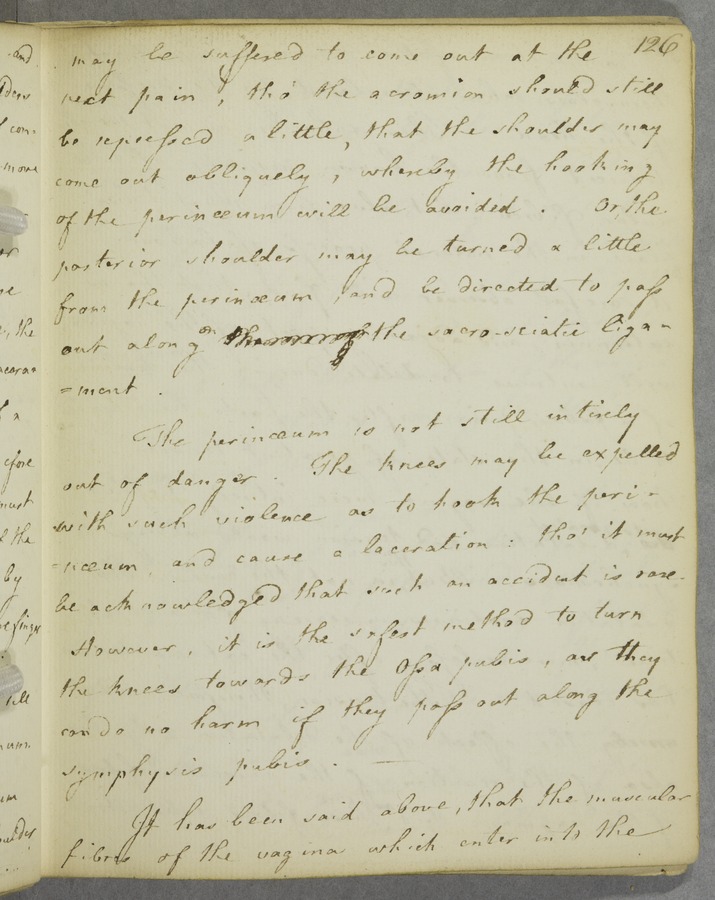 126
may be suffered to come out at the
next pain ; tho' the acromion should still
be repressed a little, that the shoulder may
come out obliquely ; whereby the hooking
of the perinæum will be avoided . Or the
posterior shoulder may be turned a little
from the perinæum , and be directed to pass
out along the sacro-sciatic liga-
=ment .
The perinæum is not still intirely
out of danger . The knees may be expelled
with such violence as to hook the peri-
=næum , and cause a laceration : tho' it must
be acknowledged that such an accident is rare.
However , it is the safest method to turn
the knees towards the Ossa pubis , as they
can do no harm if they pass out along the
symphysis pubis . —
It has been said above, that the muscular
fibres of the vagina which enter into the